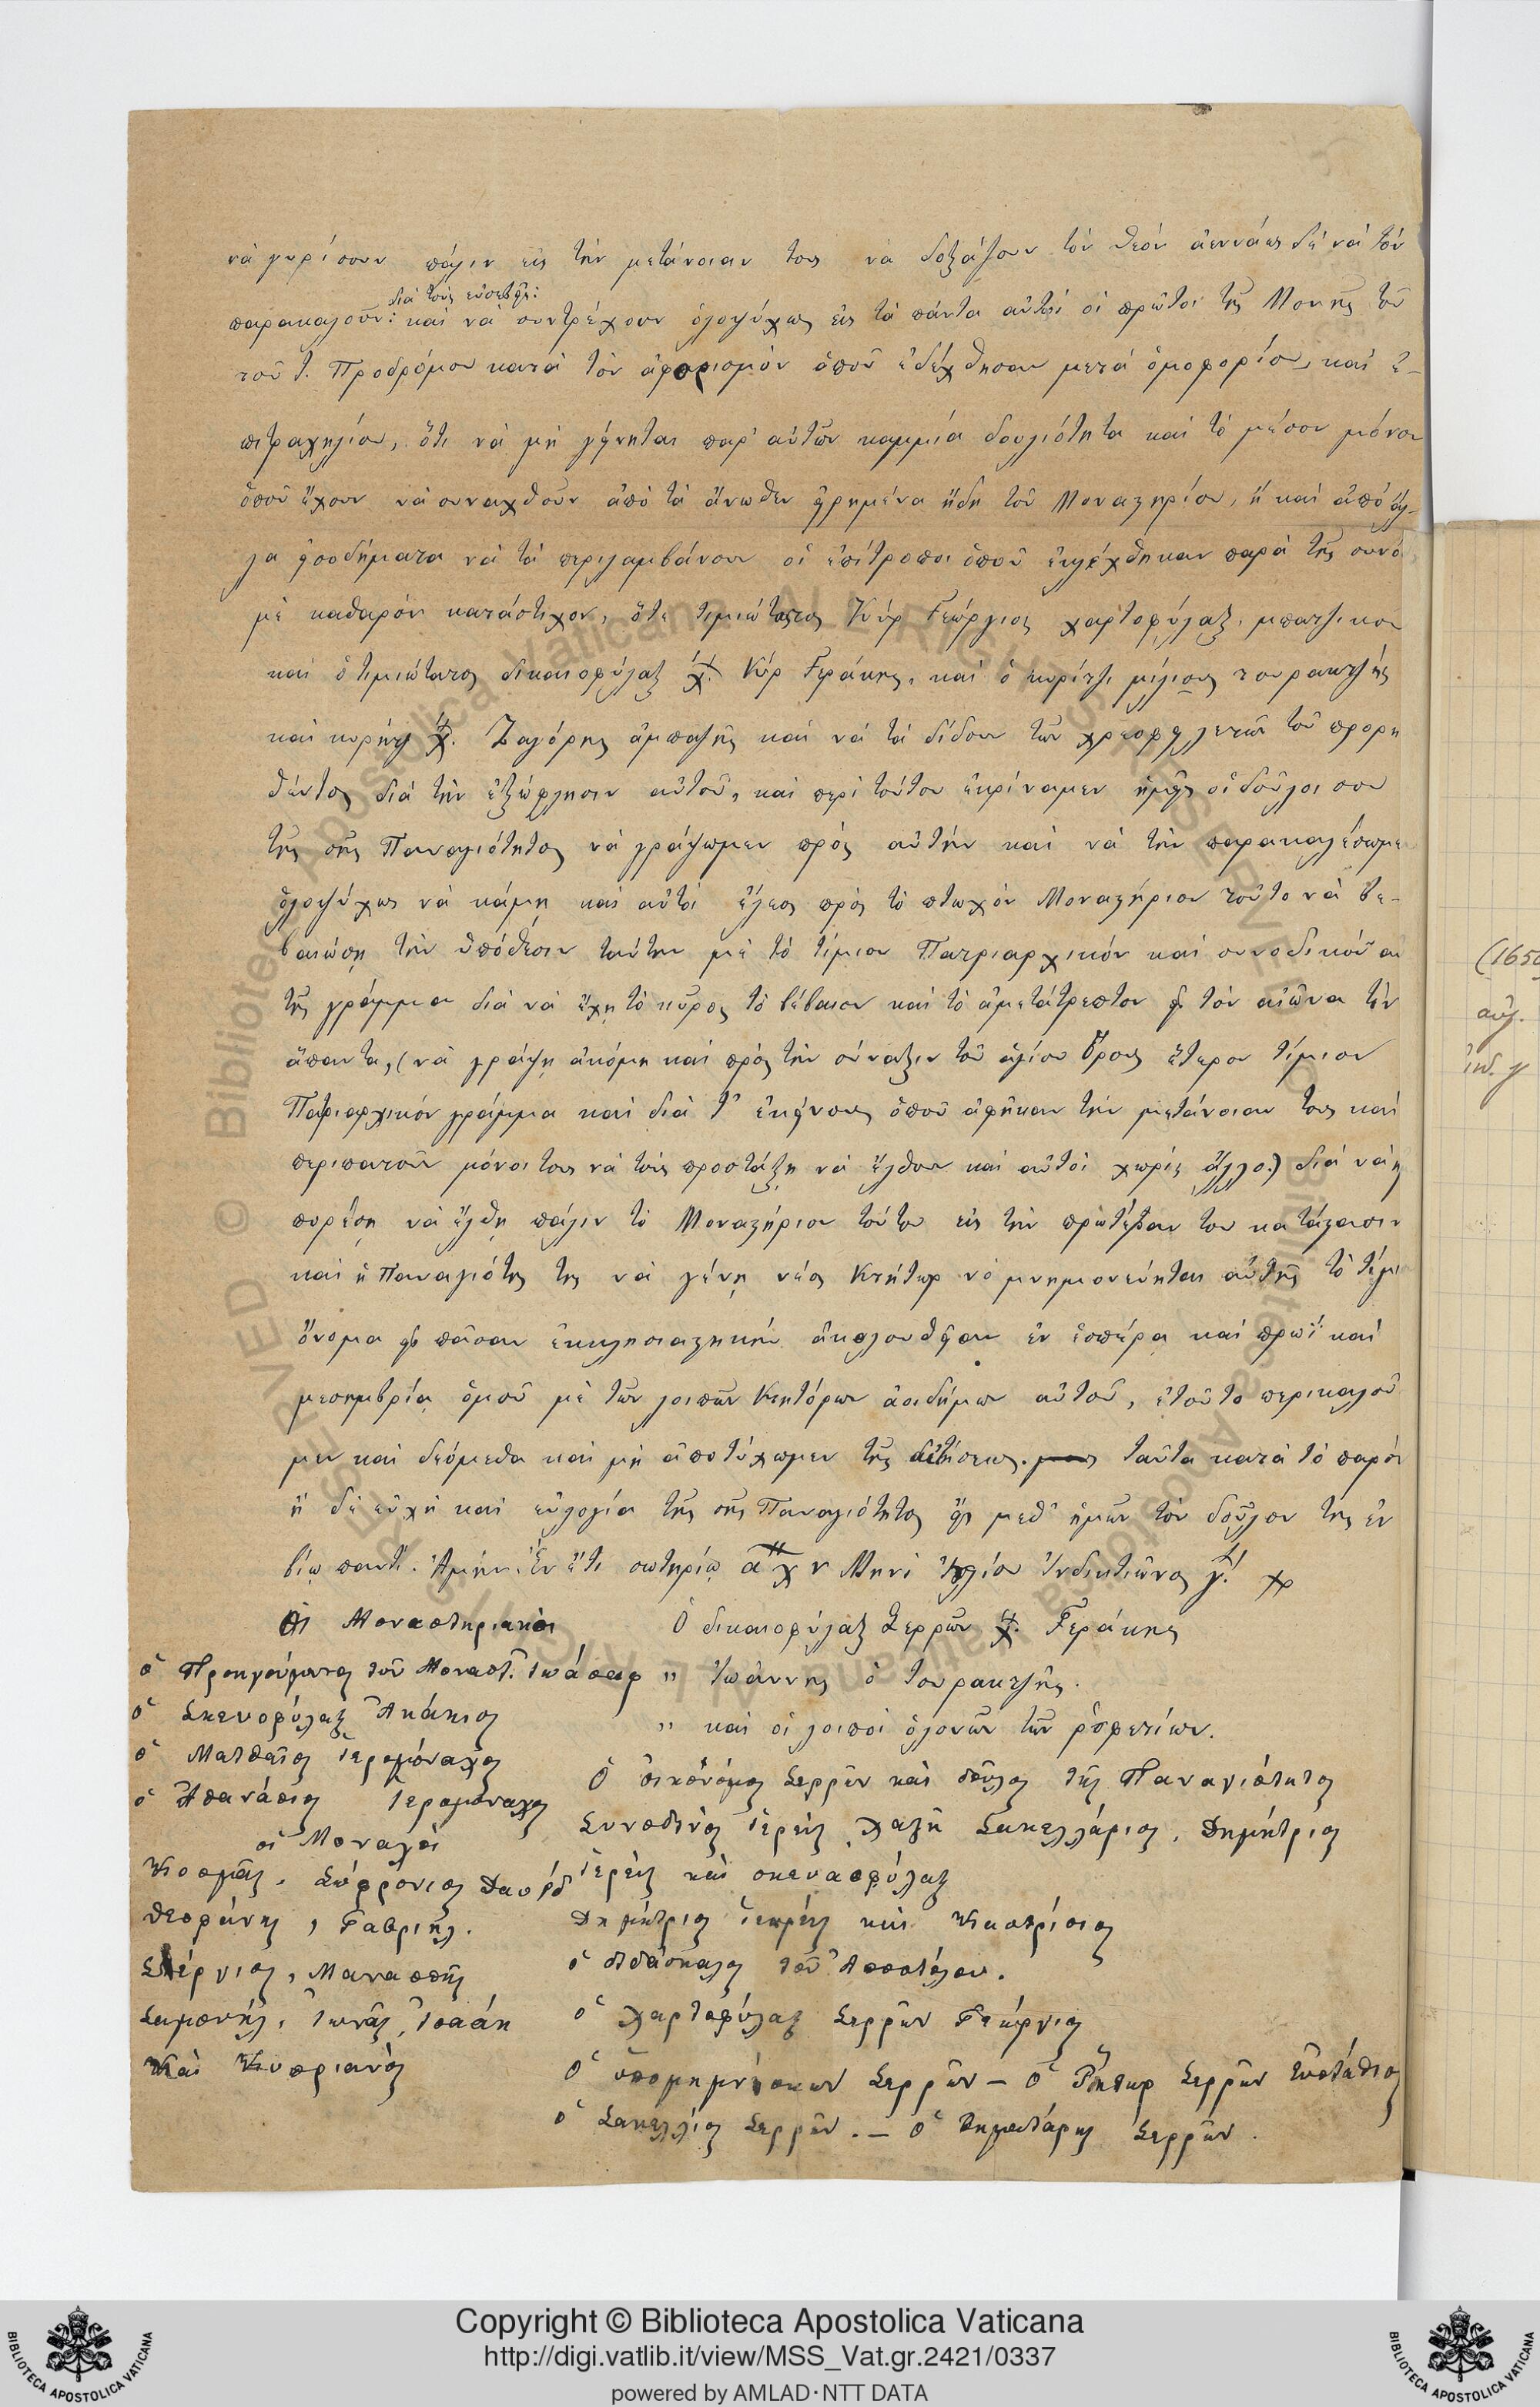 νὰ γυρίσουν πάλιν εἰς τὴν μετάνοιαν τους νὰ δοξάζουν τὸν θεὸν ἀεννάως δὲ νὰ τὸν
διὰ τοὺς εὐσεβεῖς:
παρακαλοῦν: καὶ νὰ συντρέχουν ὁλοψύχως εἰς τὰ πάντα αὐτοὶ οἱ πρῶτοι τῆς Μονῆς τοῦ
τοῦ τ. Προδρόμου κατὰ τὸν ἀφορισμὸν ὁποῦ ἐδέχθησαν μετὰ ὁμοφορίου, καὶ ἐ-
πιτραχηλίου, ὅτι νὰ μὴ γίνηται παρ' αὐτῶν καμμία δουλιότητα καὶ τὸ μέσον μόνον
ὁποῦ ἔχουν νὰ συναχθοῦν ἀπὸ τὰ ἄνωθεν εἰρημένα ἤδη τοῦ Μοναστηρίου, ἢ καὶ ἀπὸ ἄλ-
λα εἰσοδήματα νὰ τὰ περιλαμβάνουν οἱ ἐπίτροποι ὁποῦ ἐκλέχθηκαν παρὰ τῆς συνό
μὲ καθαρὸν κατάστιχον, ὅτε τιμιώτατος Κὺρ Γεώργιος χαρτοφύλαξ, μπατζικου
καὶ ὁ τιμιώτατος δικαιοφύλαξ χ. Κὺρ Γεράκης, καὶ ὁ κυρίτζι μίλιους τουρακτζῆς
καὶ κυρήτζ χ. Ζαγόρης ἀμπατζῆς καὶ νὰ τὰ δίδουν τῶν χρεοφειλετῶν τοῦ προρη
θέντος διὰ τὴν ἐξώφλησιν αὐτοῦ, καὶ περὶ τούτου ἐκρίναμεν ἡμεῖς οἱ δοῦλοι σου
τῆς σῆς Παναγιότητος νὰ γράψωμεν πρὸς αὐτὴν καὶ νὰ τὴν παρακαλέσωμεν
ὁλοψύχως νὰ κάμῃ καὶ αὐτὴ ἔλεος πρὸς τὸ πτωχὸν Μοναστήριον τοῦτο νὰ βε-
βαιώσῃ τὴν ὑπόθεσιν ταύτην μὲ τὸ τίμιον Πατριαρχικὸν καὶ συνοδικὸν αὐ
τῆς γράμμα διὰ νὰ ἔχῃ τὸ κῦρος τὸ βέβαιον καὶ τὸ ἀμετάτρεπτον εἰς τὸν αἰῶνα τὸν
ἅπαντα, (νὰ γράψῃ ἀκόμη καὶ πρὸς τὴν σύναξιν τοῦ ἁγίου Ὄρους ἕτερον τίμιον
Πατριαρχικὸν γράμμα καὶ διὰ τ' ἐκείνους ὁποῦ ἀφῆκαν τὴν μετάνοιαν τους καὶ
περιπατοῦν μόνοι τους νὰ τοὺς προστάξῃ νὰ ἔλθουν καὶ αὐτοὶ χωρὶς ἄλλο.) διὰ νὰ ἠ
πορέσῃ νὰ ἔλθῃ πάλιν τὸ Μοναστήριον τοῦτο εἰς τὴν πρωτέραν του κατάστασιν
καὶ ἡ Παναγιότης της νὰ γένῃ νέος Κτήτωρ νὰ μνημονεύηται αὐτῆς τὸ τίμιο
ὄνομα εἰς πᾶσαν ἐκκλησιαστικὴν ἀκολουθίαν ἐν ἑσπέρα καὶ πρωῒ καὶ
μεσημβρίᾳ ὁμοῦ μὲ τῶν λοιπῶν Κτητόρων ἀοιδήμων αὐτοῦ, ἐτοῦτο περικαλοῦ
μεν καὶ δεόμεθα καὶ μὴ ἀποτύχωμεν τῆς αἰτήσεως. ταῦτα κατὰ τὸ παρὸν
ἡ δὲ εὐχὴ καὶ εὐλογία τῆς σῆς Παναγιότητος εἴη μεθ' ἡμῶν τὸν δοῦλον της ἐν
βίῳ παντί. Ἀμήν. Ἐν ἔτι σωτηρίῳ αχν Μηνὶ Ἰουλίου Ἰνδικτιῶνος γ.
Οἱ Μοναστηριακοὶ
ὁ Προηγούμενος τοῦ Μοναστ. Ἰωάσαφ
ὁ Σκευοφύλαξ Ἀκάκιος
ὁ Ματθαῖος Ἱερομόναχος
ὁ Ἀθανάσιος Ἱερομόναχος
οἱ Μοναχοὶ
Κοσμᾶς, Σωφρόνιος Δαυίδ
Θεοφάνης, Γαβριήλ.
Σέργιος, Μανασσῆς
Σαμουήλ, Ἰωνᾶς, Ἰσαάκ
Καὶ Κυπριανὸς
Ὁ δικαιοφύλαξ Σερρῶν χ. Γεράκης
" Ἰωάννης ὁ τουρακτζῆς.
" καὶ οἱ λοιποὶ ὁλονῶν τῶν ῥοφετίων.
Ὁ Οἰκονόμος Σερρῶν καὶ δοῦλος τῆς Παναγιότητος
Συνοδινὸς Ἱερεὺς χατζῆ Σακελλάριος, Δημήτριος
Ἱερεὺς καὶ σκευοφύλαξ
Δημήτριος Ἱερεὺς καὶ Καστρίσιος
ὁ διδάσκαλος τοῦ Ἀποστόλου.
ὁ χαρτοφύλαξ Σερρῶν Γεώργιος
Ὁ ὑπομημνίσκων Σερρῶν – Ὁ Ῥήτωρ Σερρῶν Εὐστάθιος
ὁ Σακελλίος Σερρῶν. – ὁ Δημοτάρης Σερρῶν.
(1650
αὐγ.
ἰνδ. γ
Copyright © Biblioteca Apostolica Vaticana
http://digi.vatlib.it/view/MSS_Vat.gr.2421/0337
powered by AMLAD·NTT DATA